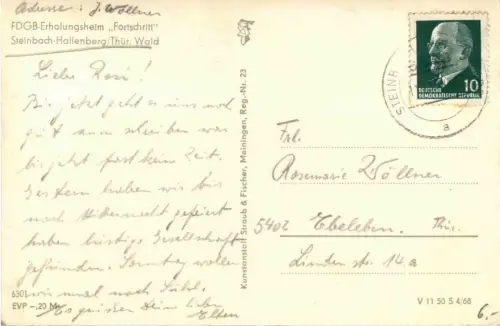 Adresse: J. Wöllner
FDGB-Erholungsheim „Fortschritt"
Steinbach-Hallenberg/Thür. Wald
Liebe Rosi!
Bis jetzt geht es uns noch
gut zum schreiben war
bis jetzt fast kein Zeit.
Gestern haben wir bis
nach Mitternacht gefeiert
haben lustige Gesellschaft
gefunden. Sonntag wollen
wir mal nach Suhl.
Es grüßen Deine liebe
Eltern
6301
EVP -.20 M
Kunstanstalt Straub & Fischer, Meiningen, Reg.-Nr. 23
STEINB
a
10
DEUTSCHE
DEMOKRATISCHE REPUBLIK
Frl.
Rosemarie Wöllner
5402 Ebeleben. Thür.
Lindenstr. 14a
V 11 50 S 4/68
6.-